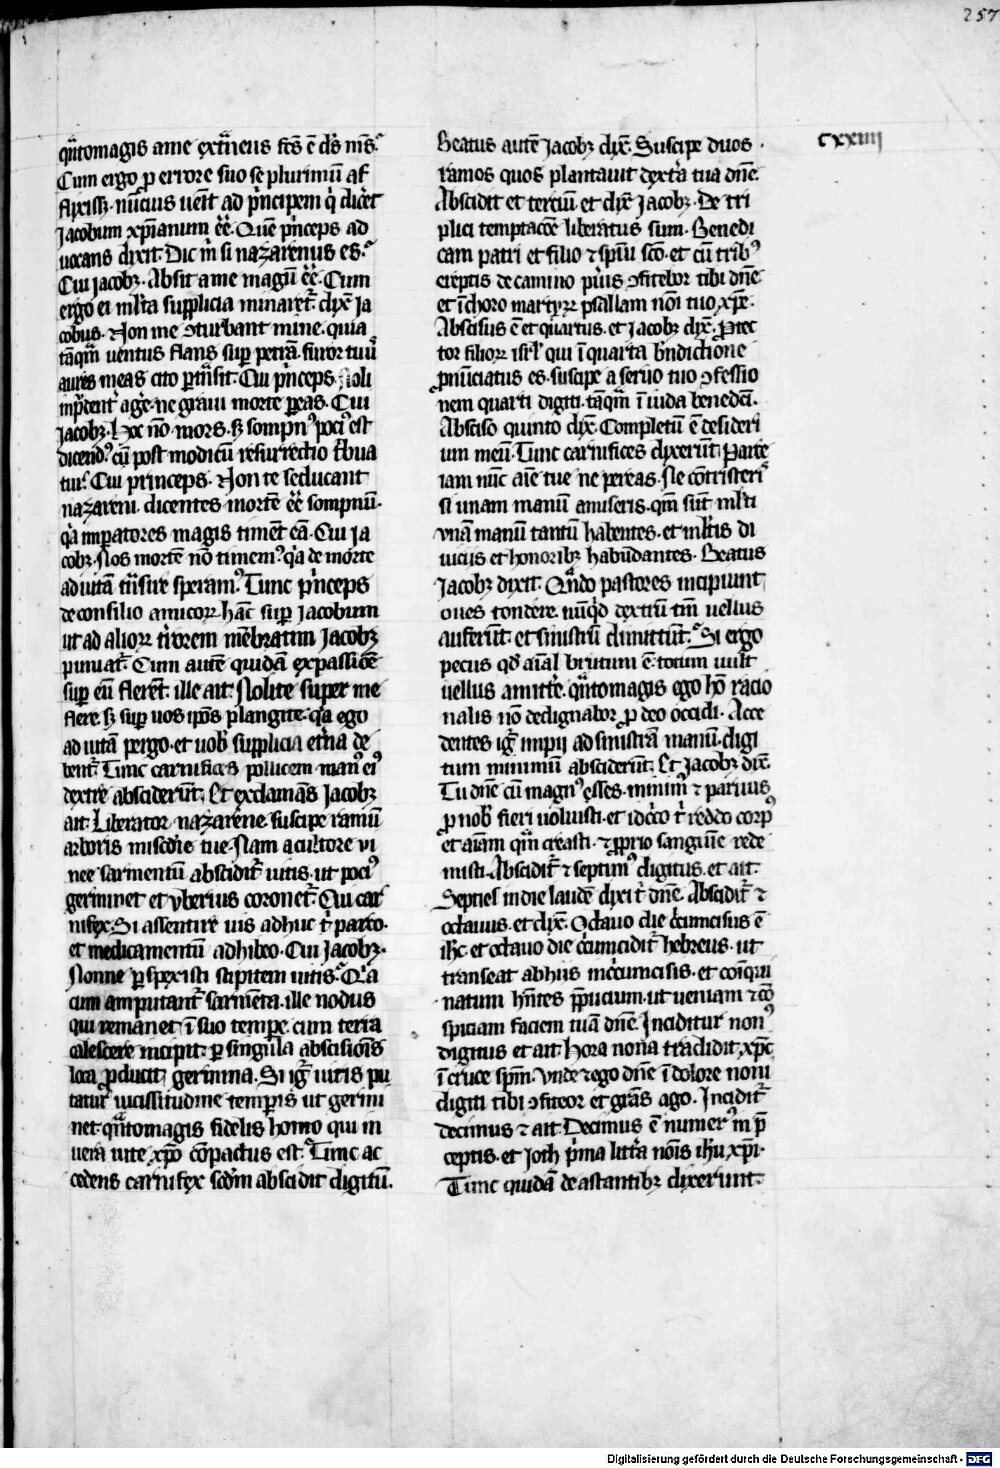 257
cxxiiij
qͣntomagis a me ext̾neus fc̄s ē dn̄s m̄s.
Cum ergo p̱ errore suo se plurimū af
flixiss; nūcius uen̄t ad pͥncipem qͥ dic̾et
Jacobum xp̄ianum eē̾. Quē pͥnceps ad
uocans dixit. Dic m̄ si nazarenus es.
Cui jacobꝫ. Absit a me magū eē̾. Cum
ergo ei ml̄ta supplicia minaret̾. dix̄ Ja
cobus. Non me ꝯturbant mine. quia
tāqm̄ uentus flans suꝑ petrā. furor tuū
aures meas cito ꝑtn̄sit. Cui pͥnceps. Noli
inpͥdent̾ age̾. ne graui morte ꝑeas. Cui
Jacobꝫ. Hoc nō mors. sꝫ sompnꝰ pociꝰ est
dicendꝰ. cū post modicū resurrectio tͥbua
tur. Cui princeps. Non te seducant
nazareni. dicentes mortē eē̾ sompnū.
qͥa imꝑatores magis timēt eā. Cui ja
cobꝫ. Nos mortē nō timemꝰ. qͥa de morte
ad uitā tn̄sire speramꝰ. Tunc pͥnceps
de consilio amicoꝝ. hāc suꝑ jacobum
ut ad alioꝝ tͥrorem mēbratim Jacobꝫ
puniat̾. Cum autē quidā ex passiōe
suꝑ eū flerēt. ille ait. Nolite super me
flere. sꝫ suꝑ uos ip̄os plangite. qͥa ego
ad uitā pergo. et uob̾ supplicia et̾na de
bent̾. Tunc carnifices pollicem manꝰ eiꝰ
dextre absciderūt. Et exclamās Jacobꝫ
ait. Liberator nazarene. suscipe ramū
arboris mīscdie tue. Nam a cultore vi
nee sarmentū abscidit̾ uitis. ut pociꝰ
germinet et vberius coronet̾. Cui car
nifex. Si assentire uis adhuc tͥ parco.
et medicamentū adhibeo. Cui Jacobꝫ.
Nonne ꝑspexisti stipitem uitis. Qͥa
cum amputant̾ sarmēta. ille nodus
qui remanet ī suo tempe̾. cum terra
calescere incipit. ꝑ singula abscisiōis
loca ꝓducit germina. Si ig̾ uitis pu
tatur uicissitudine temꝑis ut germi
net. qͣntomagis fidelis homo qui in
uera uite xp̄o cōpactus est. Tunc ac
cedens carnifex scdm̄ abscidit digitū.
Beatus autē Jacobꝫ dix̄. Suscipe duos
ramos quos plantauit dext̾a tua dn̄e.
Abscidit et terciū. et dix̄ Jacobꝫ. De tri
plici temptacōe liberatus sum. Benedi
cam patri et filio ⁊ spūi sc̄o. et cū tribꝰ
ereptis de camino pūis ꝯfitebor tibi dn̄e.
et ī choro martyrꝝ psallam nōi tuo xp̄e.
Abscisus ē et quͣrtus. et Jacobꝫ dix̄. ꝓtec
tor filioꝝ isrl̄ qui ī quarta bn̄dictione
ꝓnūciatus es. suscipe a seruo tuo ꝯfessio
nem quarti digiti. tāqm̄ ī iuda benedcī.
Absciso quinto dix̄. Completū ē desideri
um meū. Tunc carnifices dixerūt. Parce
iam nūc aīe tue ne pereas. Ne cōtristeri
si unam manū amiseris. qm̄ sūt ml̄ti
vnā manū tantū habentes. et ml̄tis di
uiciis et honoribꝫ habūdantes. Beatus
Jacobꝫ dixit. Qͣndo pastores incipiunt
oues tondere. nūqͥd dextrū tm̄ uellus
auferūt. et sinistrū dimittūt. Si ergo
pecus qd̾ aīal brutum ē. totum uult
uellus amitte̾. qͣntomagis ego hō racio
nalis nō dedignabor p̱ deo occidi. Acce
dentes ig̾ impij ad sinistrā manū. digi
tum minimū absciderūt. Et Jacobꝫ dix̄.
Tu dn̄e cū magnꝰ esses. minimꝰ ⁊ paruus
ꝓ nob̾ fieri uoluisti. et idcͥco tͥ reddo corpꝰ
et aīam qm̄ creasti. ⁊ ꝓprio sanguīe rede
misti. Abscidit̾ ⁊ septimꝰ digitus. et ait.
Septies in die laudē dixi tͥ dn̄e. Abscidit̾ ⁊
octauus. et dix̄. Octauo die cͥcumcisus ē
ihc̄. et octauo die cͥcumcidit̾ hebreus. ut
transeat ab hiis incͥcumcisis. et coīqui
natum hn̄tes p̄puciùm. ut ueniam ⁊ cō
spiciam faciem tuā dn̄e. Inciditur nonꝰ
digitus et ait. Hora nona tradidit xp̄c
ī cruce spm̄. vnde ⁊ ego dn̄e ī dolore noni
digiti tibi ꝯfiteor et grās ago. Incidit̾
decimus ⁊ ait. Decimus ē numerꝰ in p̄
ceptis. et Joth pͥma litt̾a nōis ih̄u xp̄i.
Tunc quidā de astantibꝫ dixerunt.
Digitalisierung gefördert durch die Deutsche Forschungsgemeinschaft - DFG